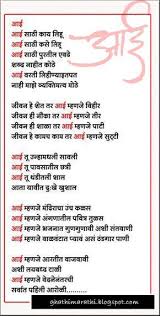 आई
आई
आई साठी काय लिहू
आई साठी कसे लिहू
आई साठी पुरतील एवढे
शब्द नाहीत कोठे
आई वरती लिहीण्याइतपत
नाही माझे व्यक्तिमत्व मोठे
जीवन हे शेत तर आई म्हणजे विहीर
जीवन ही नौका तर आई म्हणजे तीर
जीवन ही शाळा तर आई म्हणजे पाटी
जीवन हे कामच काम तर आई म्हणजे सुट्टी
आई तू उन्हामधली सावली
आई तू पावसातली छत्री
आई तू थंडीतली शाल
आता यावीत दुःखे खुशाल
आई म्हणजे मंदिराचा उंच कळस
आई म्हणजे अंगणातील पवित्र तुळस
आई म्हणजे भजनात गुणगुणावी अशी संतवाणी
आई म्हणजे वाळवंटात प्यावं असं थंडगार पाणी
आई म्हणजे आरतीत वाजवावी
अशी लयबध्द टाळी
आई म्हणजे वेदनेनंतरची
सर्वात पहिली आरोळी....
ghathimarathi.blogspot.com